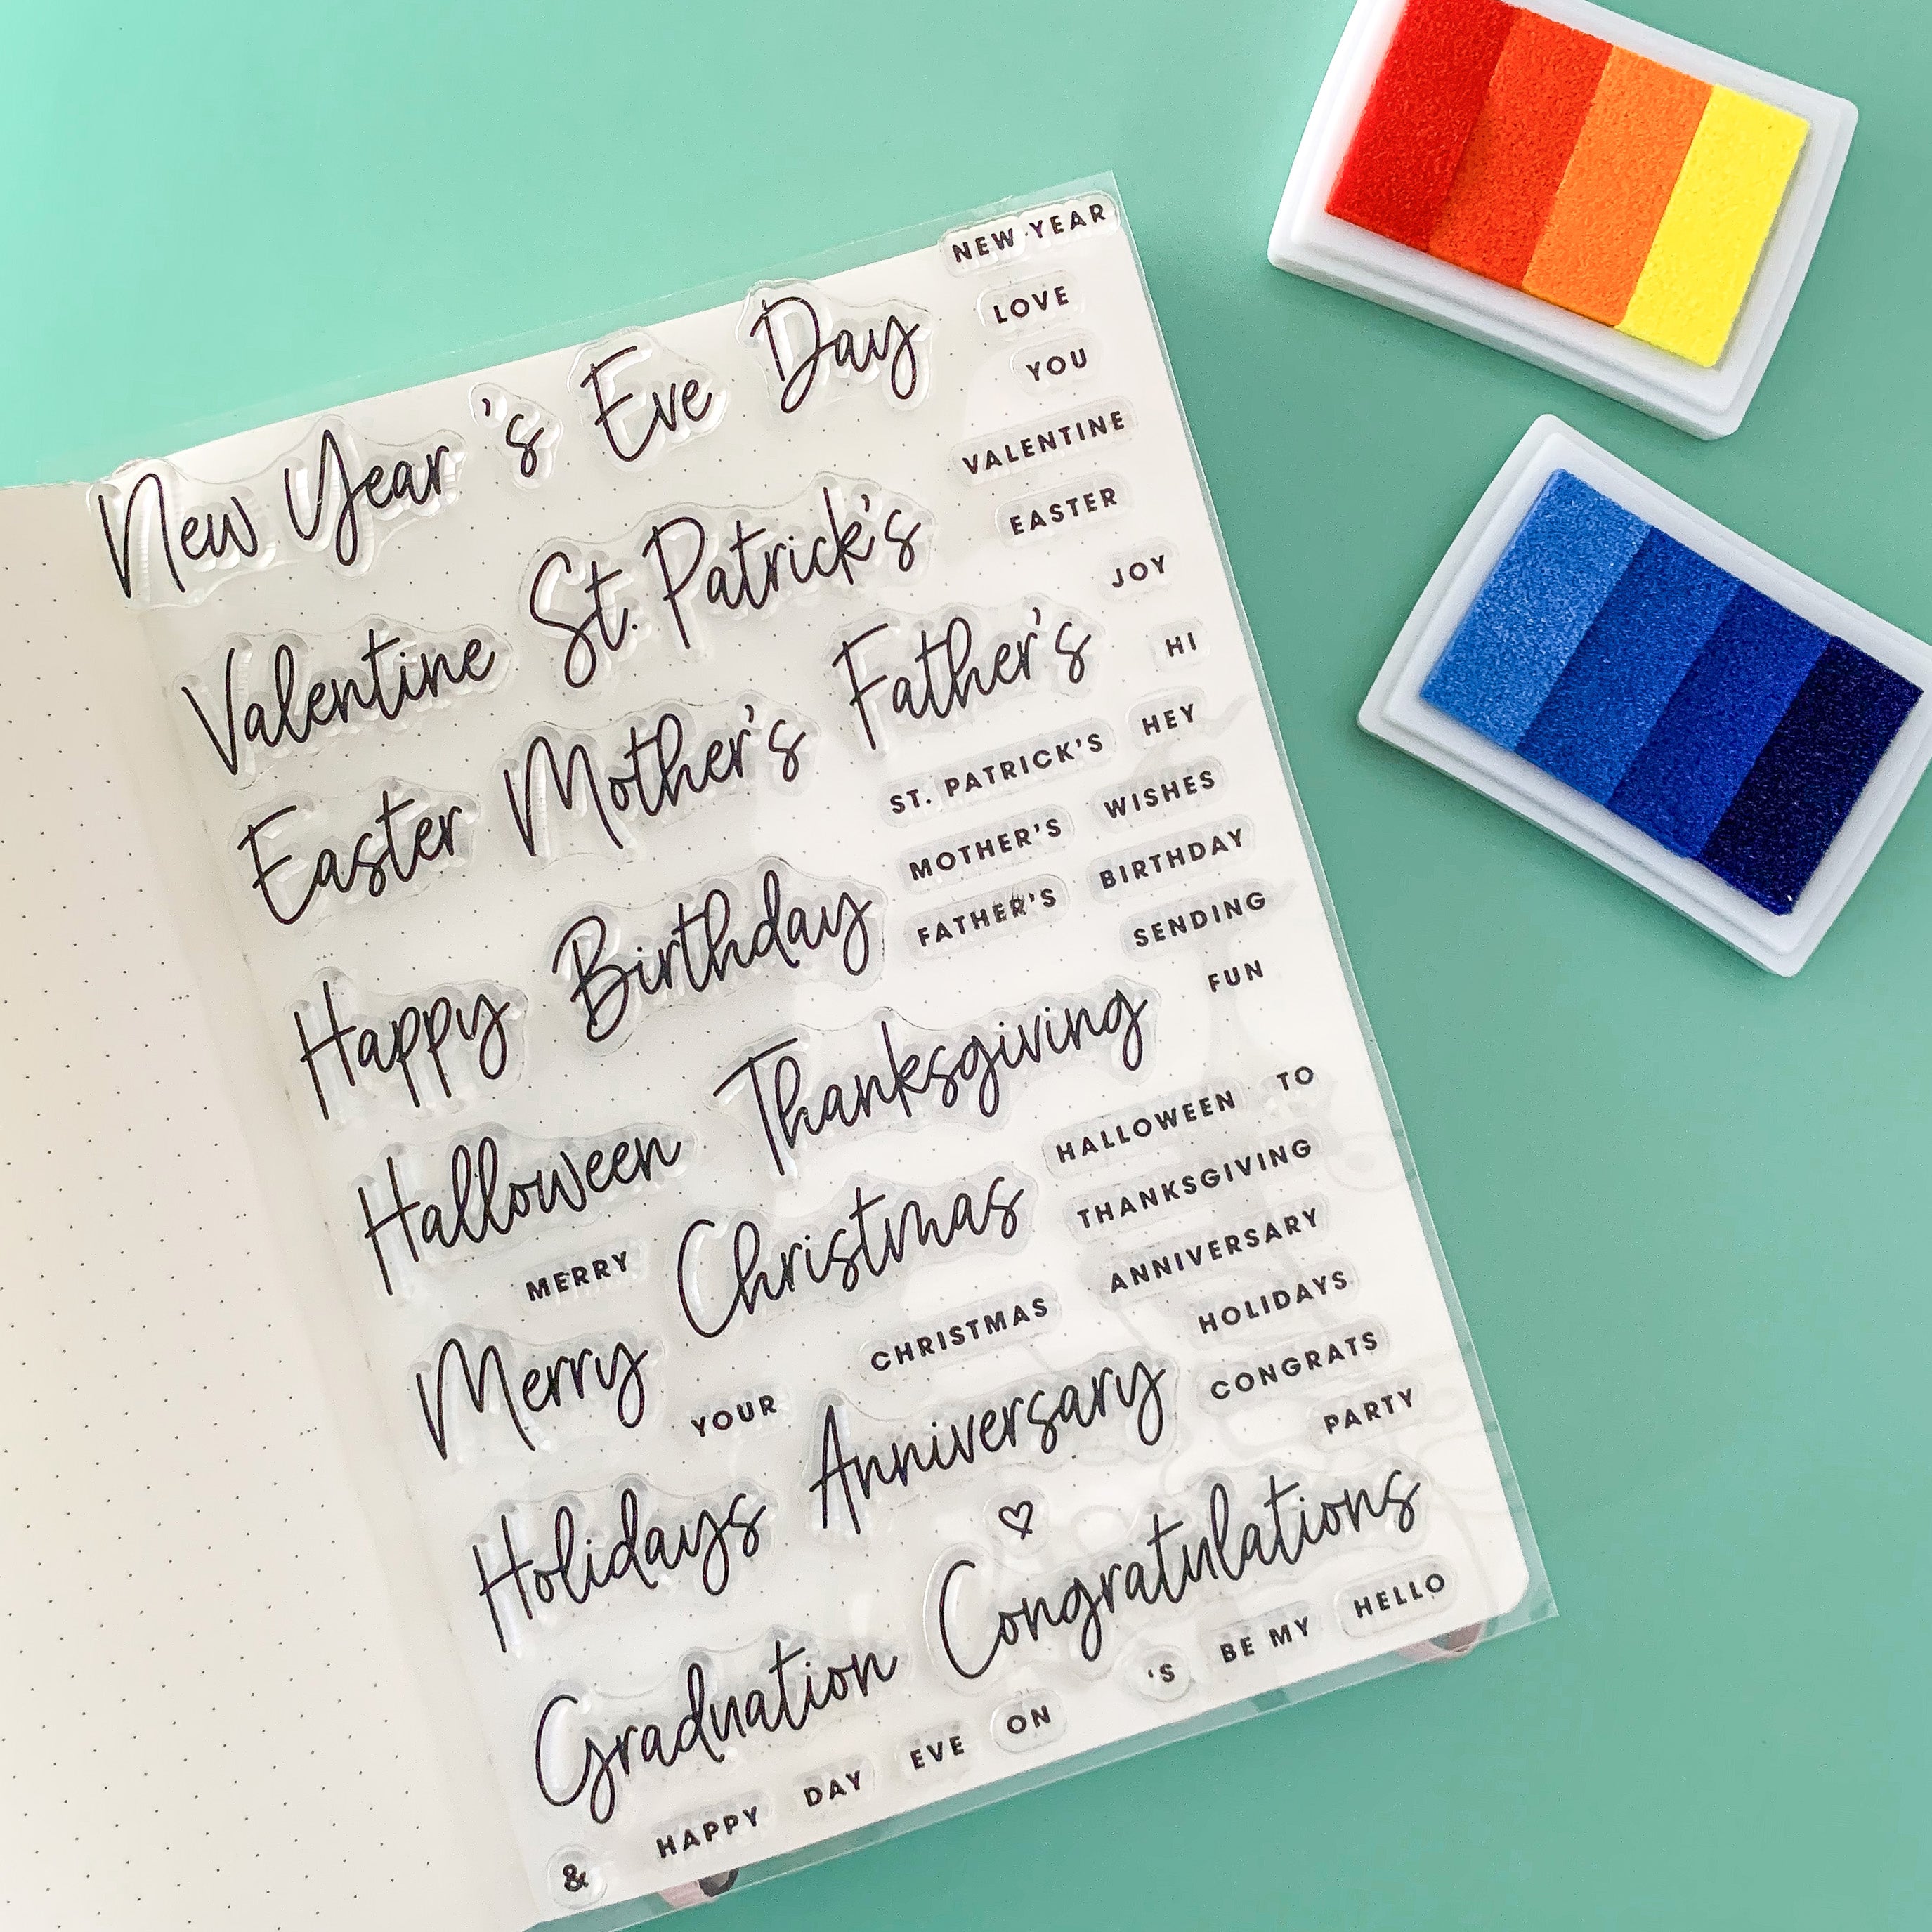 NEW YEAR
New Year 's Eve Day
LOVE
YOU
VALENTINE
EASTER
Valentine St. Patrick's
JOY
HI
Easter Mother's Father's
HEY
ST. PATRICK'S
WISHES
MOTHER'S
BIRTHDAY
FATHER'S
SENDING
Happy Birthday
FUN
TO
HALLOWEEN
Halloween Thanksgiving
THANKSGIVING
ANNIVERSARY
MERRY
HOLIDAYS
Merry Christmas
CHRISTMAS
CONGRATS
YOUR
PARTY
Holidays Anniversary
Graduation Congratulations
HELLO
BE MY
'S
ON
EVE
DAY
HAPPY
&